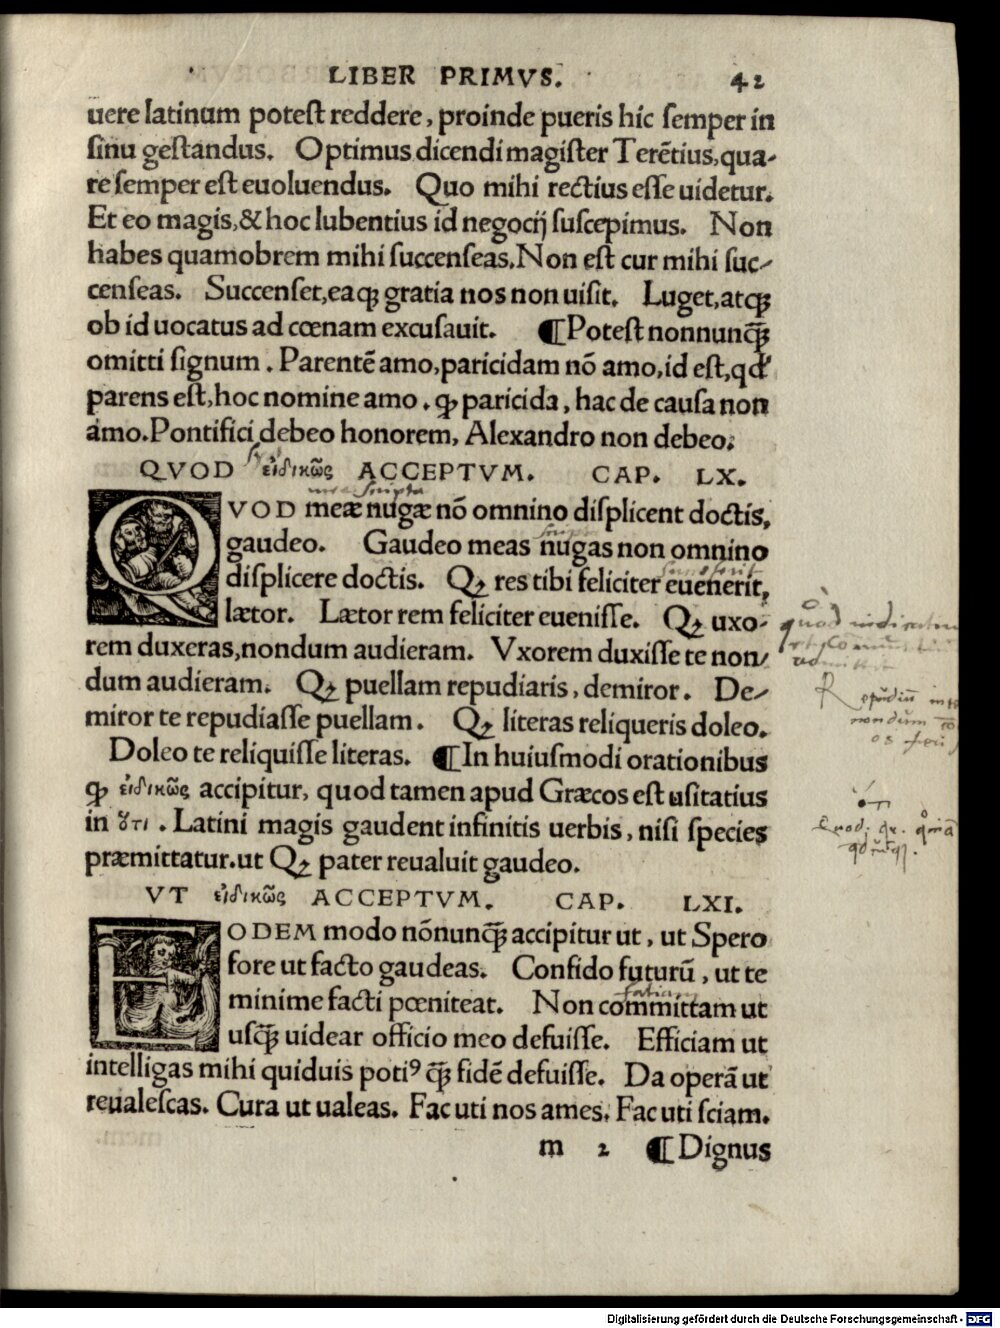 LIBER PRIMVS. 42
uere latinum potest reddere, proinde pueris hic semper in
sinu gestandus. Optimus dicendi magister Terẽtius, qua-
re semper est euoluendus. Quo mihi rectius esse uidetur.
Et eo magis, & hoc lubentius id negocij suscepimus. Non
habes quamobrem mihi succenseas. Non est cur mihi suc-
censeas. Succenset, eaq; gratia nos non uisit. Luget, atq;
ob id uocatus ad cœnam excusauit. ¶ Potest nonnunq̃
omitti signum. Parentẽ amo, paricidam nõ amo, id est, qđ
parens est, hoc nomine amo. ꝙ paricida, hac de causa non
amo. Pontifici debeo honorem, Alexandro non debeo.
QVOD εἰδικῶς ACCEPTVM. CAP. LX.
QVOD meæ nugæ nõ omnino displicent doctis,
gaudeo. Gaudeo meas nugas non omnino
displicere doctis. Qꝫ res tibi feliciter euenerit,
lætor. Lætor rem feliciter euenisse. Qꝫ uxo-
rem duxeras, nondum audieram. Vxorem duxisse te non-
dum audieram. Qꝫ puellam repudiaris, demiror. De-
miror te repudiasse puellam. Qꝫ literas reliqueris doleo.
Doleo te reliquisse literas. ¶ In huiusmodi orationibus
ꝙ εἰδικῶς accipitur, quod tamen apud Græcos est usitatius
in ὅτι. Latini magis gaudent infinitis uerbis, nisi species
præmittatur. ut Qꝫ pater reualuit gaudeo.
VT εἰδικῶς ACCEPTVM. CAP. LXI.
EODEM modo nõnunq̃ accipitur ut, ut Spero
fore ut facto gaudeas. Confido futurũ, ut te
minime facti pœniteat. Non committam ut
usq̃ uidear officio meo defuisse. Efficiam ut
intelligas mihi quiduis potiꝰ q̃ fidẽ defuisse. Da operã ut
reualescas. Cura ut ualeas. Fac uti nos ames. Fac uti sciam.
m 2 ¶ Dignus
Digitalisierung gefördert durch die Deutsche Forschungsgemeinschaft - DFG